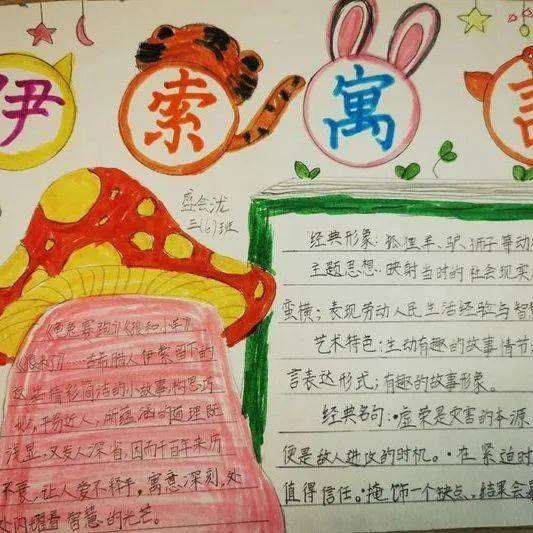 伊索寓言
盛会沈
三(6)班
《龟兔赛跑》《狼和小羊》
《狼来了》……古希腊人伊索留下的
这些情形简洁的小故事,构思巧
妙,平易近人,所蕴涵的道理既
浅显,又发人深省,因而千百年来历
不衰,让人爱不释手。寓意深刻,处
处闪耀着智慧的光芒。
经典形象:狐狸羊、驴、狮子等动
主题思想:映射当时的社会现实
蛮横;表现劳动人民生活经验与智
艺术特色:生动有趣的故事情节
言表达形式;有趣的故事形象。
经典名句:•虚荣是灾害的本源
便是敌人进攻的时机。•在紧迫时
值得信任。•掩饰一个缺点,结果会